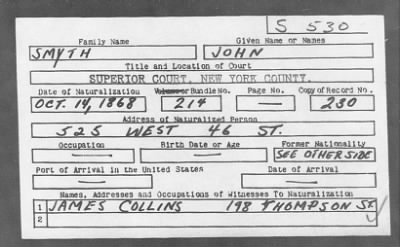 S 530
Family Name Given Name or Names
SMYTH JOHN
Title and Location of Court
SUPERIOR COURT, NEW YORK COUNTY.
Date of Naturalization Volume or Bundle No. Page No. Copy of Record No.
OCT. 14, 1868 214 — 230
Address of Naturalized Person
525 WEST 46 ST.
Occupation Birth Date or Age Former Nationality
— — SEE OTHER SIDE
Port of Arrival in the United States Date of Arrival
— —
Names, Addresses and Occupations of Witnesses To Naturalization
1 JAMES COLLINS 198 THOMPSON ST.
2